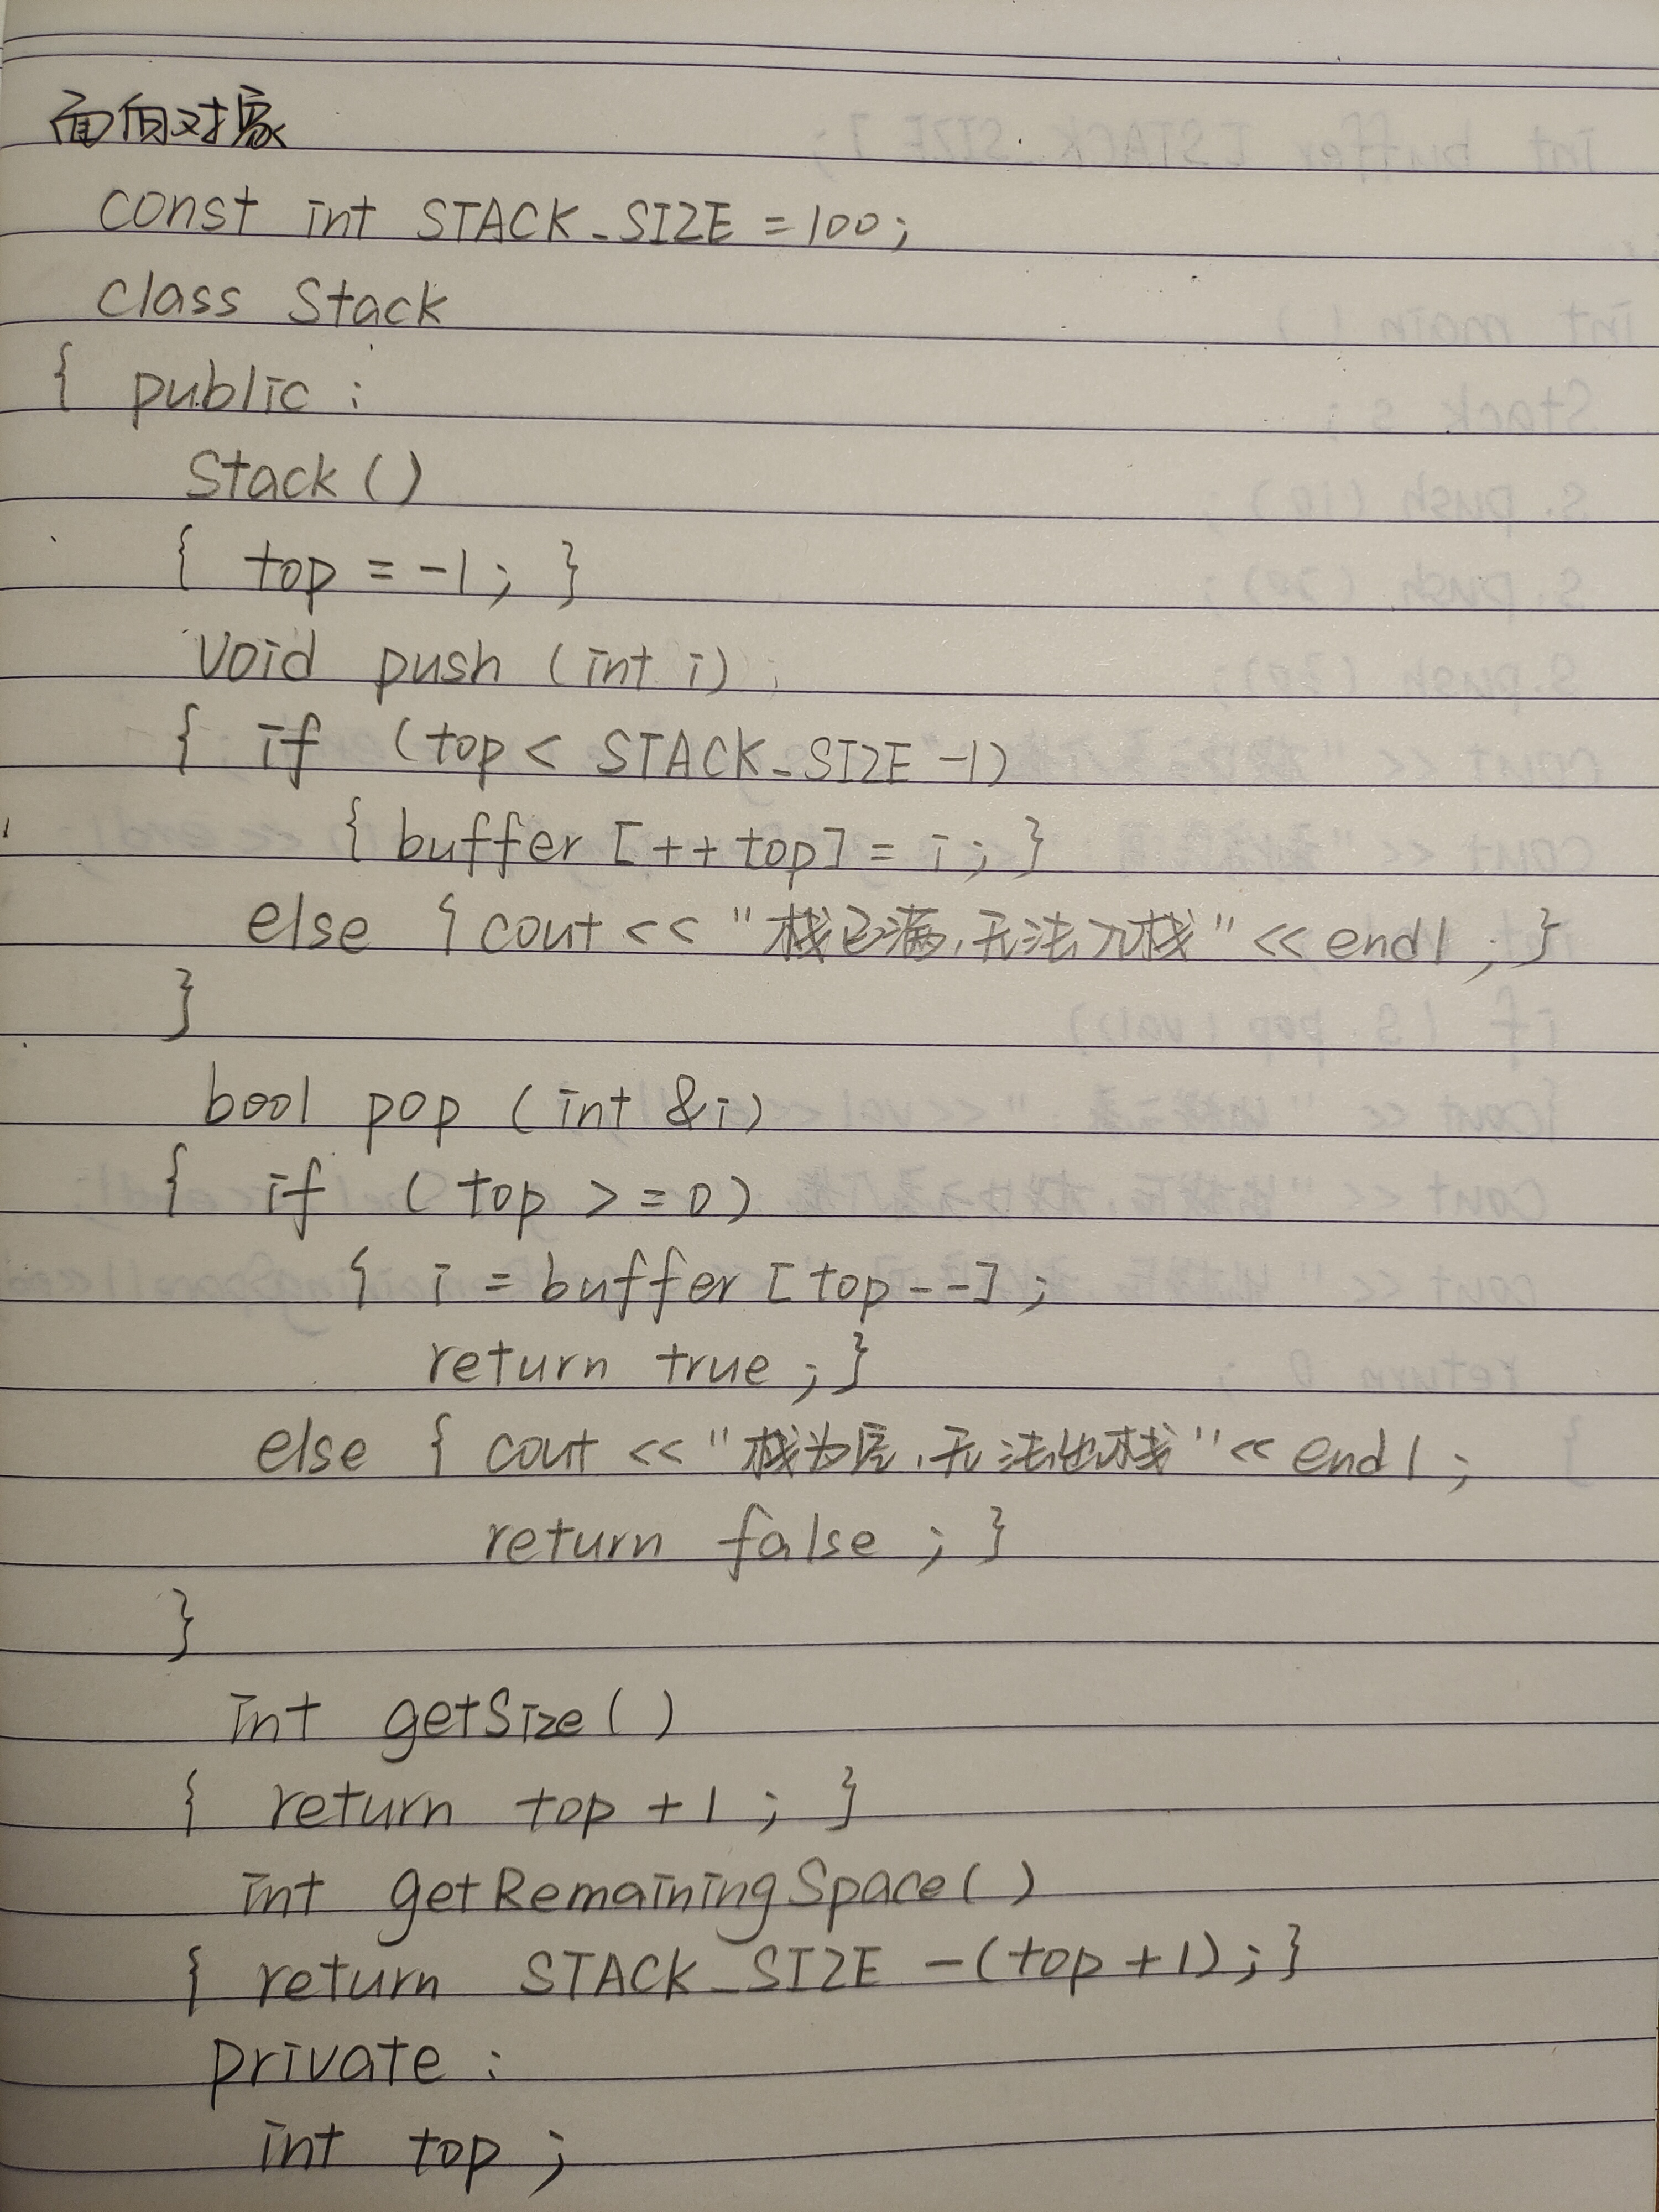 面向对象
const int STACK_SIZE = 100;
class Stack
{ public :
Stack ()
{ top = -1; }
void push (int i)
{ if (top < STACK_SIZE -1)
{ buffer [++top] = i; }
else { cout << "栈已满,无法入栈" << endl; }
}
bool pop (int &i)
{ if (top >= 0)
{ i = buffer [top--];
return true; }
else { cout << "栈为空,无法出栈" << endl;
return false; }
}
int getSize()
{ return top + 1; }
int getRemainingSpace()
{ return STACK_SIZE -(top +1); }
private :
int top ;